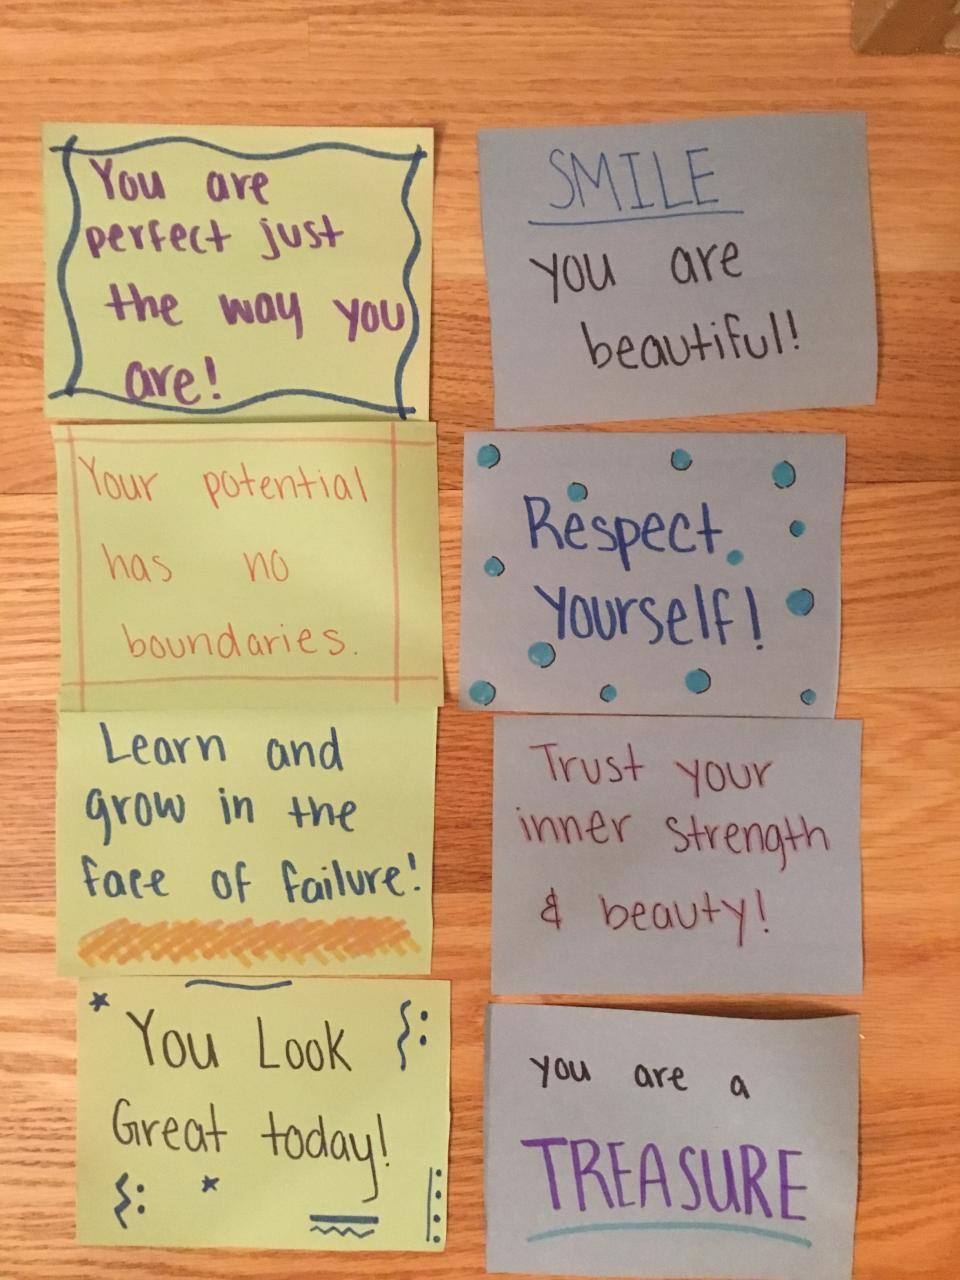 You are
perfect just
the way you
are!
Your potential
has no
boundaries.
Learn and
grow in the
face of failure!
You Look
Great today!
SMILE
you are
beautiful!
Respect
Yourself!
Trust your
inner strength
& beauty!
you are a
TREASURE